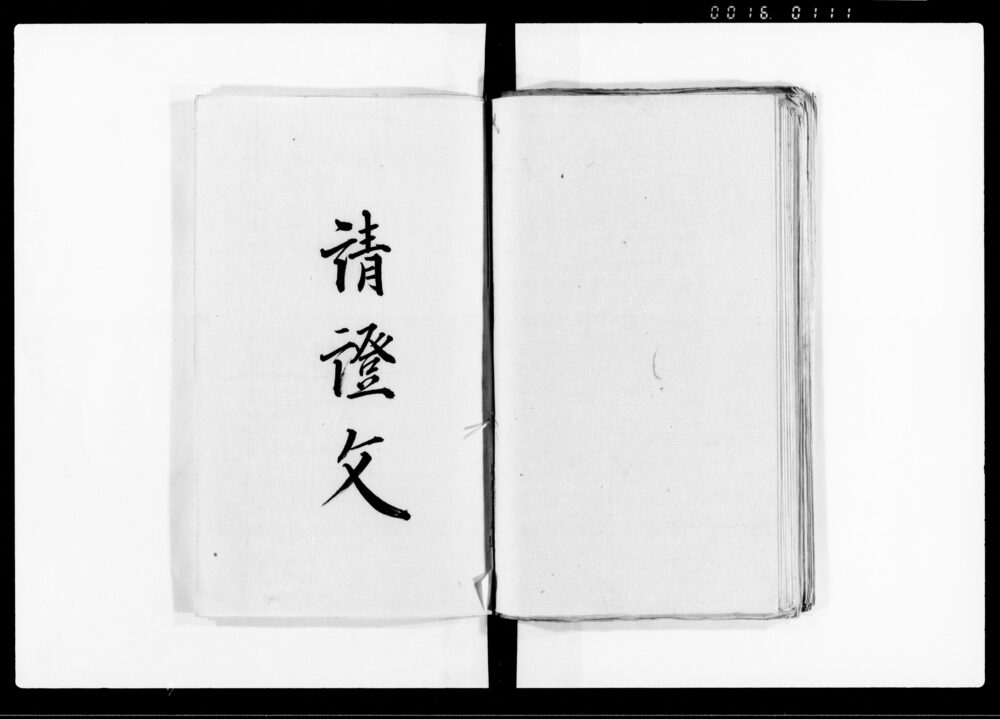 0016. 0111
請
證
文